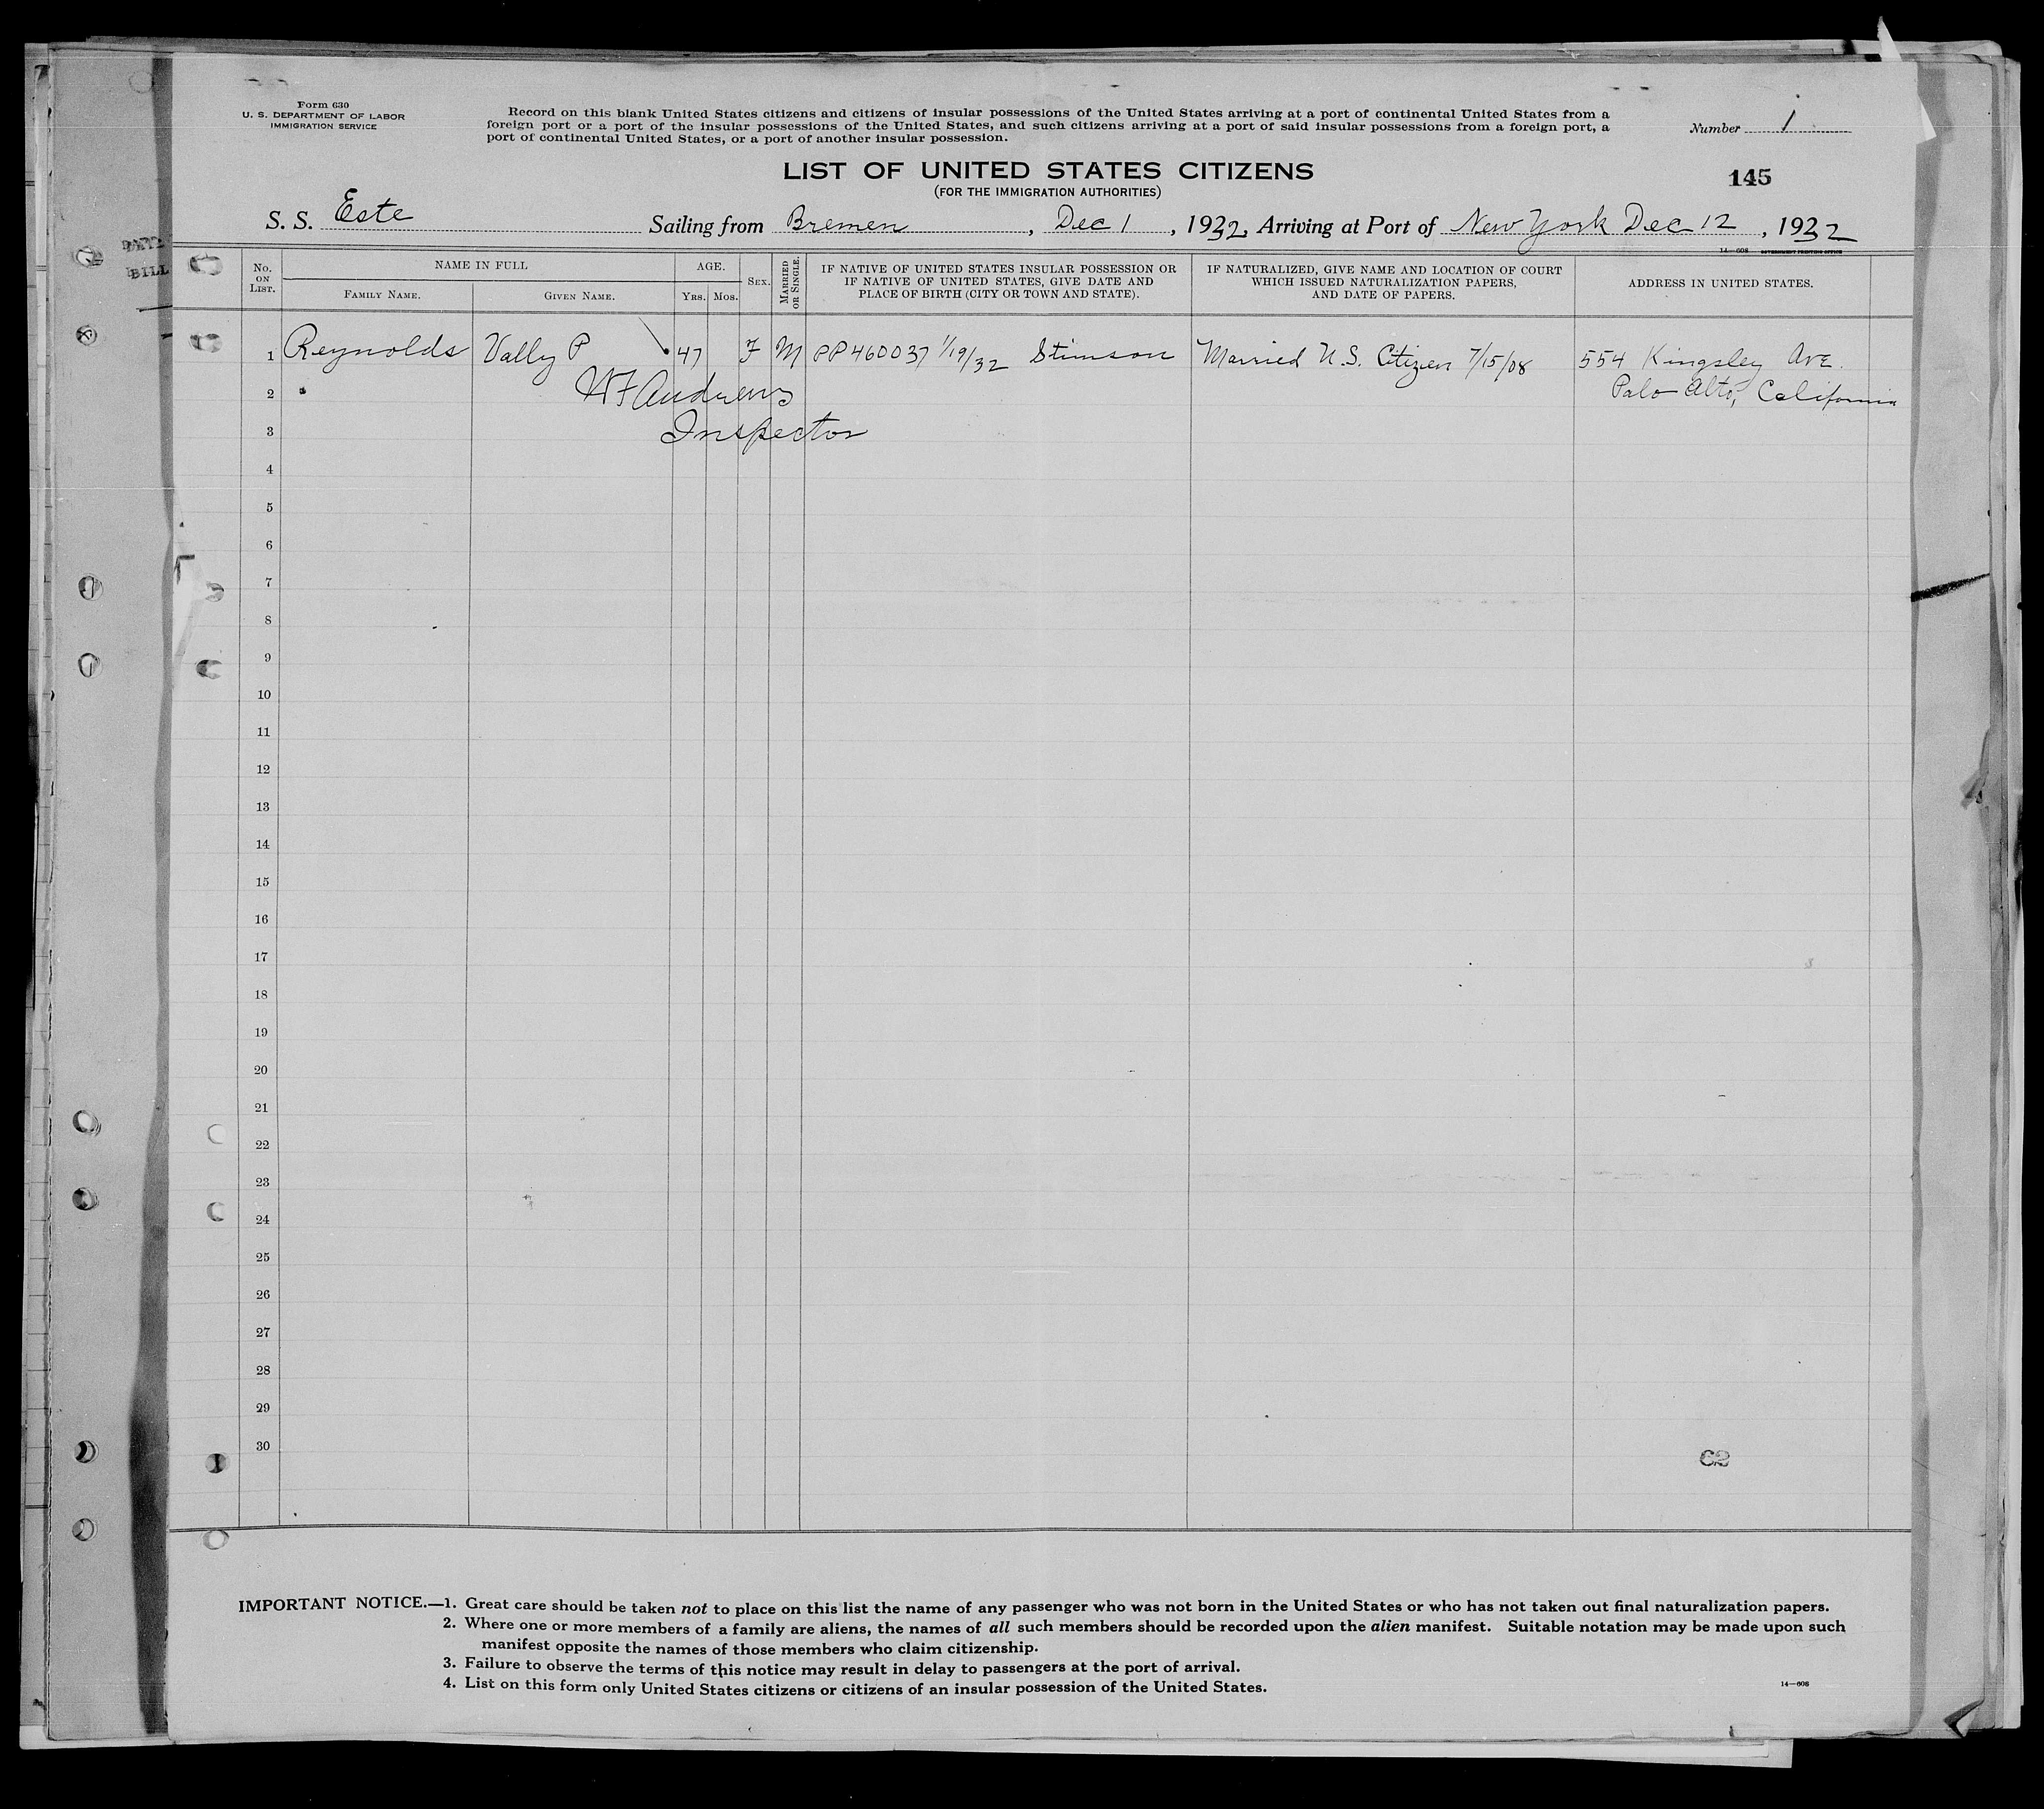 Form 630
U. S. DEPARTMENT OF LABOR
IMMIGRATION SERVICE
Record on this blank United States citizens and citizens of insular possessions of the United States arriving at a port of continental United States from a
foreign port or a port of the insular possessions of the United States, and such citizens arriving at a port of said insular possessions from a foreign port, a
port of continental United States, or a port of another insular possession.
Number 1
LIST OF UNITED STATES CITIZENS
(FOR THE IMMIGRATION AUTHORITIES)
145
S. S. Este Sailing from Bremen, Dec 1, 1932, Arriving at Port of New York Dec 12, 1932
14—608 GOVERNMENT PRINTING OFFICE
BILL
No. ON LIST.
NAME IN FULL
FAMILY NAME.
GIVEN NAME.
AGE.
YRS. MOS.
SEX.
MARRIED OR SINGLE.
IF NATIVE OF UNITED STATES INSULAR POSSESSION OR
IF NATIVE OF UNITED STATES, GIVE DATE AND
PLACE OF BIRTH (CITY OR TOWN AND STATE).
IF NATURALIZED, GIVE NAME AND LOCATION OF COURT
WHICH ISSUED NATURALIZATION PAPERS,
AND DATE OF PAPERS.
ADDRESS IN UNITED STATES.
1 Reynolds Vally P 47 F M PP 460037 1/19/32 Stimson Married U.S. Citizen 7/15/08 554 Kingsley Ave.
2 WF Andrews Palo Alto, California
3 Inspector
4
5
6
7
8
9
10
11
12
13
14
15
16
17
18
19
20
21
22
23
24
25
26
27
28
29
30
62
IMPORTANT NOTICE.—1. Great care should be taken not to place on this list the name of any passenger who was not born in the United States or who has not taken out final naturalization papers.
2. Where one or more members of a family are aliens, the names of all such members should be recorded upon the alien manifest. Suitable notation may be made upon such
manifest opposite the names of those members who claim citizenship.
3. Failure to observe the terms of this notice may result in delay to passengers at the port of arrival.
4. List on this form only United States citizens or citizens of an insular possession of the United States.
14—608